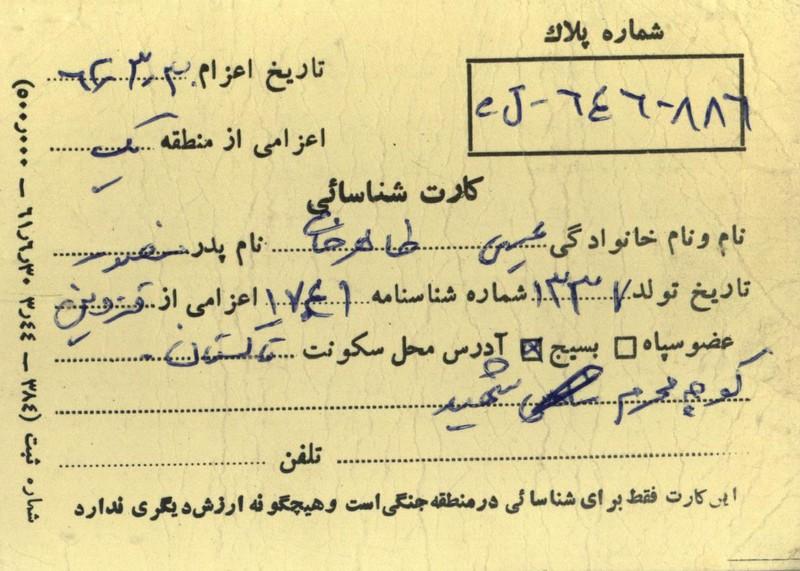 شماره پلاك
eJ-٦٤٦-٨٨٦
تاریخ اعزام
اعزامی از منطقه یک
کارت شناسائی
نام ونام خانوادگی عیسی طاهرخانی نام پدر صفدر
تاریخ تولد ١٣٣٧ شماره شناسنامه ١٧٤١ اعزامی از قزوین
عضو سپاه بسیج آدرس محل سکونت تاکستان
کوچه محرم شهید
تلفن
این کارت فقط برای شناسائی در منطقه جنگی است و هیچگونه ارزش دیگری ندارد
شماره ثبت (٣٨٤ – ٣٫٤٤ ٦١٫٦٫٣٠ – ٥٠٠٫٠٠٠)